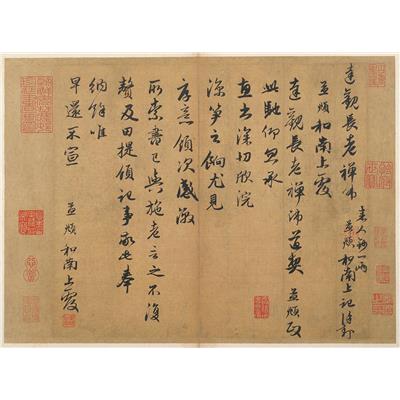 達觀長老禪師
来人 一兩
孟頫和南上記謹封
孟頫和南上覆
達觀長老禪師道契 孟頫政
此馳仰忽承
惠書深切欣浣
笋之餉尤見
厚意領次感激
所索書已與施老言之不復
贅及田提領記事 奉
納餘唯
早還不宣
孟頫和南上覆